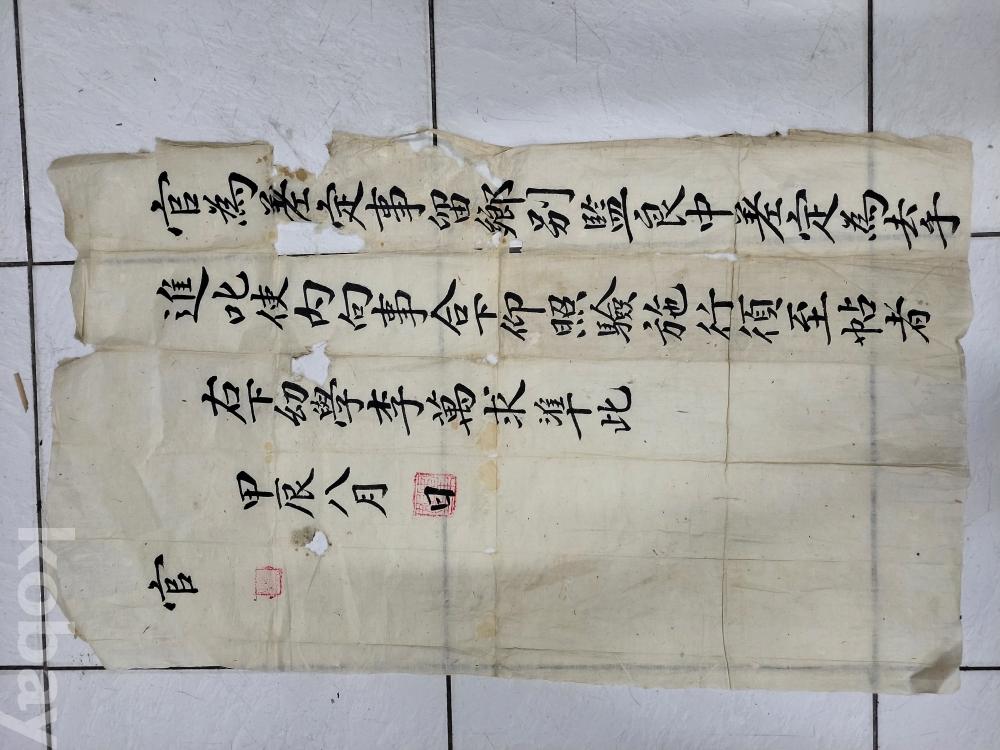 官為差定事留鄉別監良中差定為去乎
進叱使內向事合下仰照驗施行須至帖者
右下幼學李萬求準此
甲辰八月 日
官
kobay